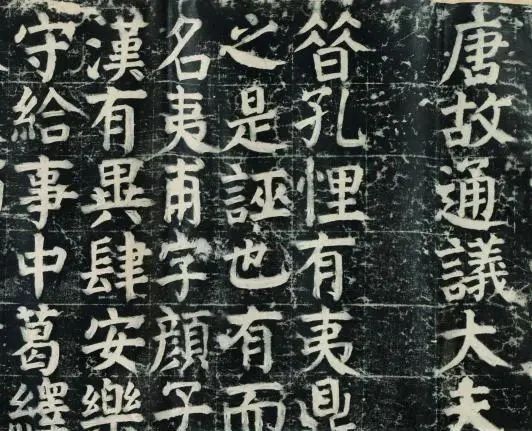 唐故通議大夫
㫺孔悝有夷鼎
之是誣也有而
名夷甫字顏子
漢有異肆安樂
守給事中葛繹